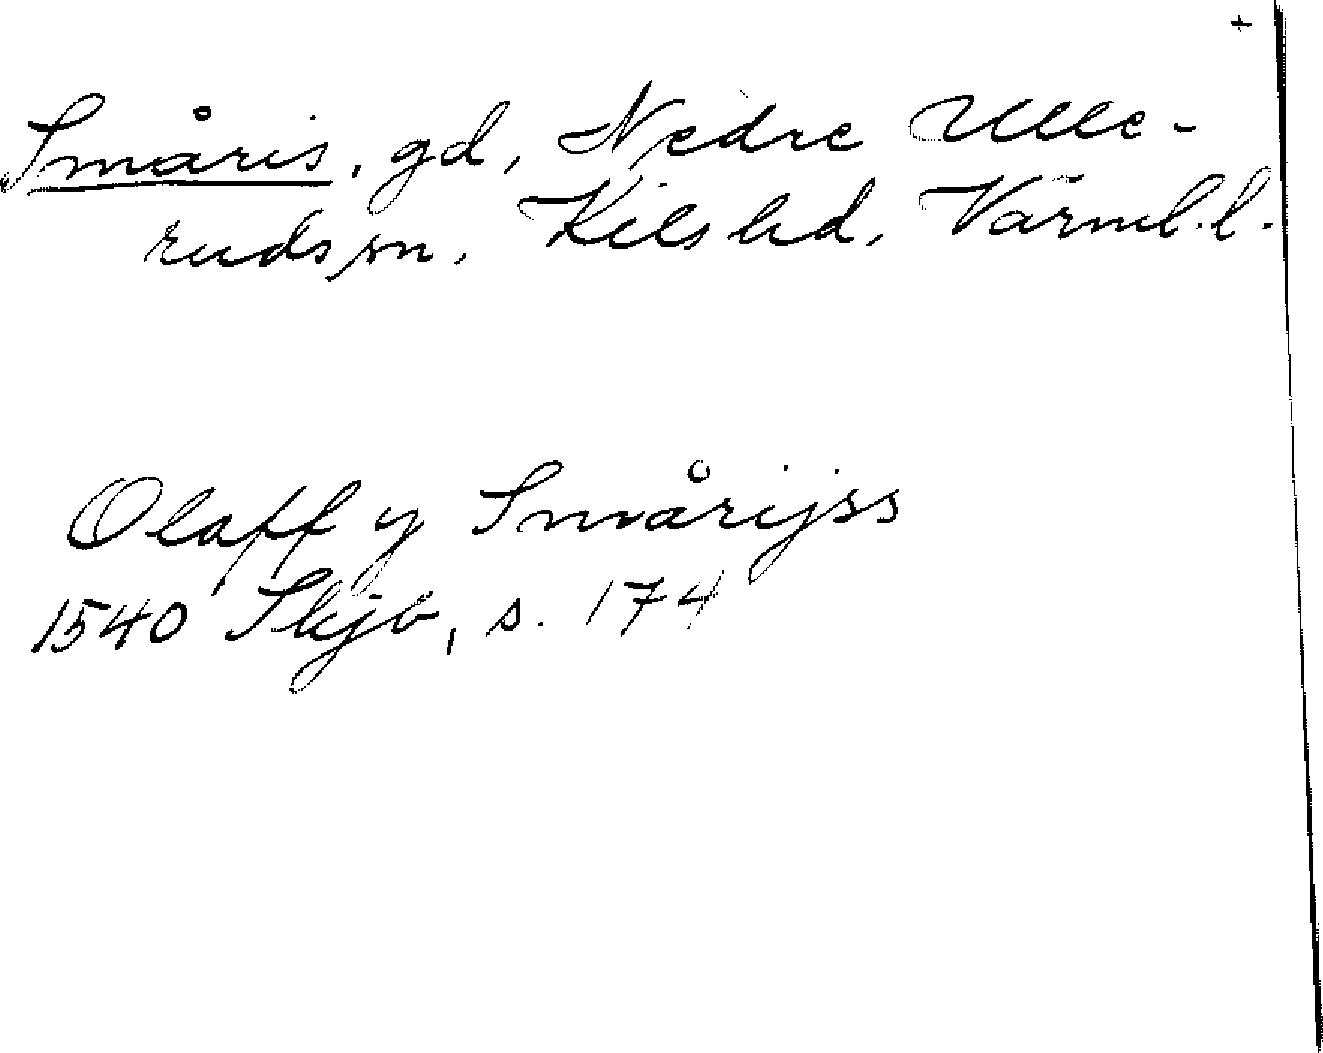 +
Småris, gd, Nedre Ulle-
ruds sn, Kils hd, Värml. l.
Olaff y Smårijss
1540 Skjb, s. 174